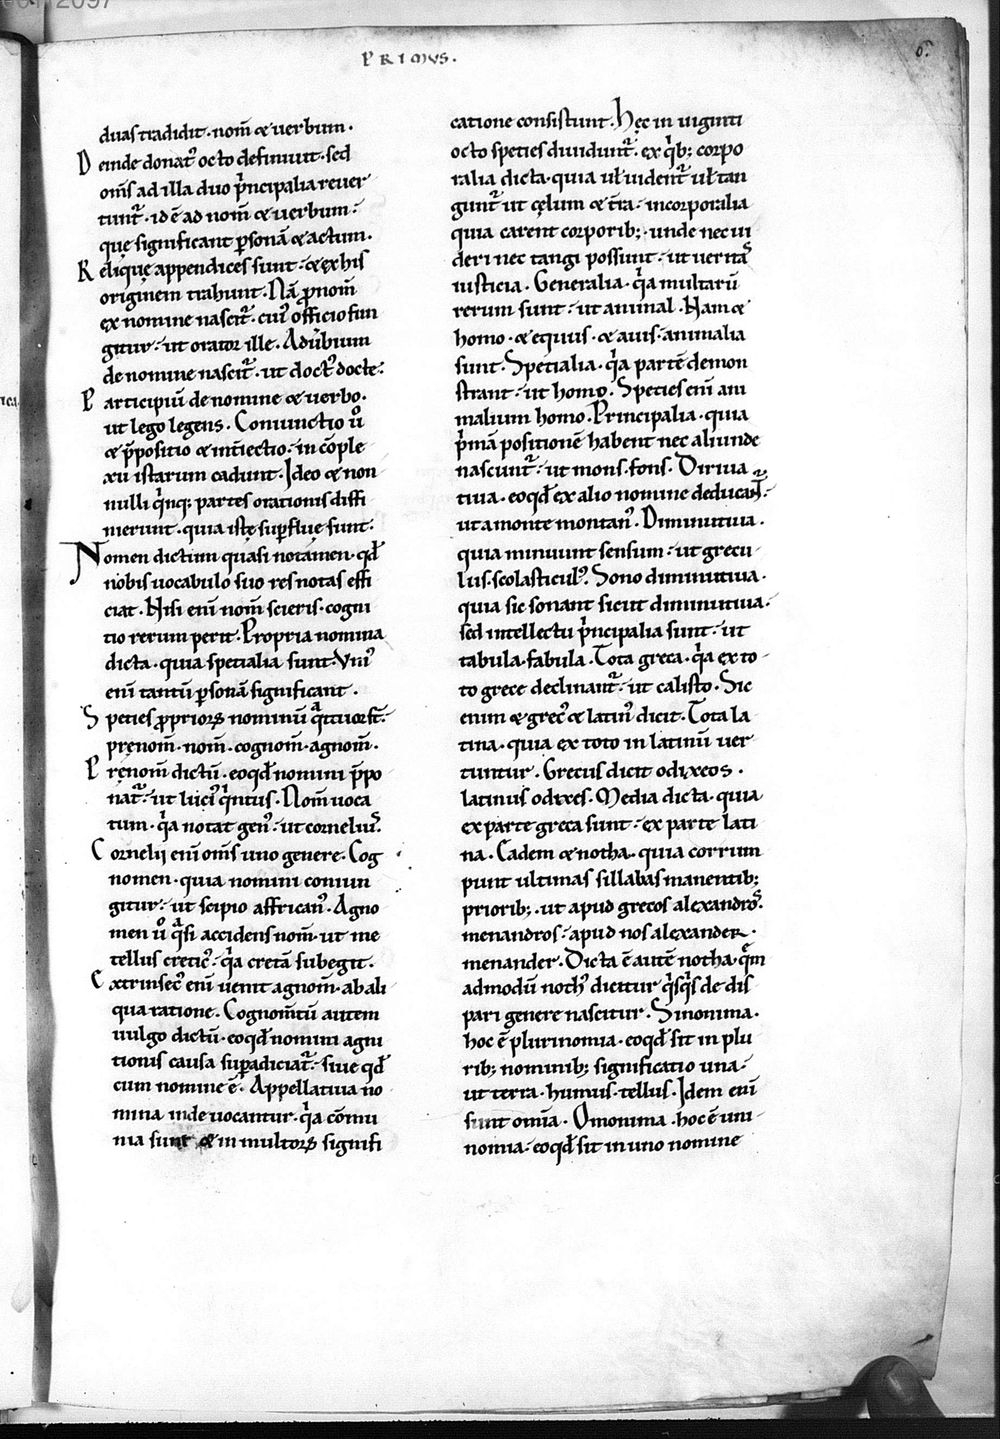 PRIMUS.
6.
duas tradidit · nom̄ & uerbum ·
Deinde donat᷒ octo definiuit · sed
om̄s ad illa duo p̍ncipalia reuer
tunt᷒ · id ē ad nom̄ & uerbum ·
quę significant ꝑsonā & actum ·
Reliquę appendices sunt · & ex his
originem trahunt · Nā ꝓnom̄
ex nomine nascit᷒ · cui᷒ officio fun
gitur · ut orator ille · Adu̍bium
de nomine nascit᷒ · ut doct᷒ docte ·
Participiū de nomine & uerbo ·
ut lego legens · Coniunctio ů
& p̄positio & int̄iectio · in cōple
xu istarum cadunt · Ideo & non
nulli q̍nq; partes orationis diffi
nierunt · quia istę suꝑfluę sunt ·
Nomen dictum quasi notamen · qđ
nobis uocabulo suo res notas effi
ciat · Nisi eni̅ nom̄ scieris · cogni
tio rerum perit · Propria nomina
dicta · quia specialia sunt · Vni᷒
eni̅ tantū ꝑsonā significant ·
Species ꝓprioꝝ nominū qͣttuor st̄ ·
pręnom̄ · nom̄ · cognom̄ · agnom̄ ·
Pręnom̄ dictū · eo qđ nomini p̄po
nat᷒ · ut luci᷒ q̍ntus · Nom̄ uoca
tum · q̍a notat gen᷒ · ut corneliu᷒ ·
Cornelij eni̅ om̄s uno genere · Cog
nomen · quia nomini coniun
gitur · ut scipio affrican᷒ · Agno
men ů qͣsi accidens nom̄ · ut me
tellus cretic᷒ · q̍a cretā subegit ·
Extrinsec᷒ eni̅ uenit agnom̄ · ab ali
qua ratione · Cognom̄tū autem
uulgo dictū · eo qđ nomini agni
tionis causa suꝑadiciat᷒ · siue qđ
cum nomine ē · Appellatiua no
mina inde uocantur · q̍a cōmu
nia sunt & in multoꝝ signifi
catione consistunt · Hęc in uiginti
octo species diuidunt᷒ · ex q̍b; corpo
ralia dicta · quia uł uident᷒ uł tan
gunt᷒ ut cęlum & t̄ra · incorporalia
quia carent corporib; · unde nec ui
deri nec tangi possunt · ut ueritas
iusticia · Generalia · q̍a multarū
rerum sunt · ut animal · Nam &
homo · & equus · & auis · animalia
sunt · Specialia · q̍a partē demon
strant · ut homo · Species eni̅ ani
malium homo · Principalia · quia
p̍mā positionē habent nec aliunde
nascunt᷒ · ut mons · fons · Diriua
tiua · eo qđ ex alio nomine deducant᷒ ·
ut a monte montan᷒ · Diminutiua ·
quia minuunt sensum · ut grecu
lus · scolasticul᷒ · Sono diminutiua ·
quia sic sonant sicut diminutiua ·
sed intellectu p̍ncipalia sunt · ut
tabula · fabula · Tota greca · q̍a ex to
to grece declinant᷒ · ut calisto · Sic
enim & grec᷒ & latin᷒ dicit · Tota la
tina · quia ex toto in latinū uer
tuntur · Grecus dicit odixeos ·
latinus odixes · Media dicta · quia
ex parte greca sunt · ex parte lati
na · Eadem & notha · quia corrum
punt ultimas sillabas manentib;
priorib; · ut apud grecos alexandros ·
menandros · apud nos alexander ·
menander · Dicta ē autē notha · quē̍m
admodū noth᷒ dicitur q̍sq̍s de dis
pari genere nascitur · Sinonima ·
hoc ē plurinomia · eo qđ sit in plu
rib; nominib; significatio una ·
ut terra · humus · tellus · Idem eni̅
sunt omīa · Omonima · hoc ē uni
nomia · eo qđ sit in uno nomine